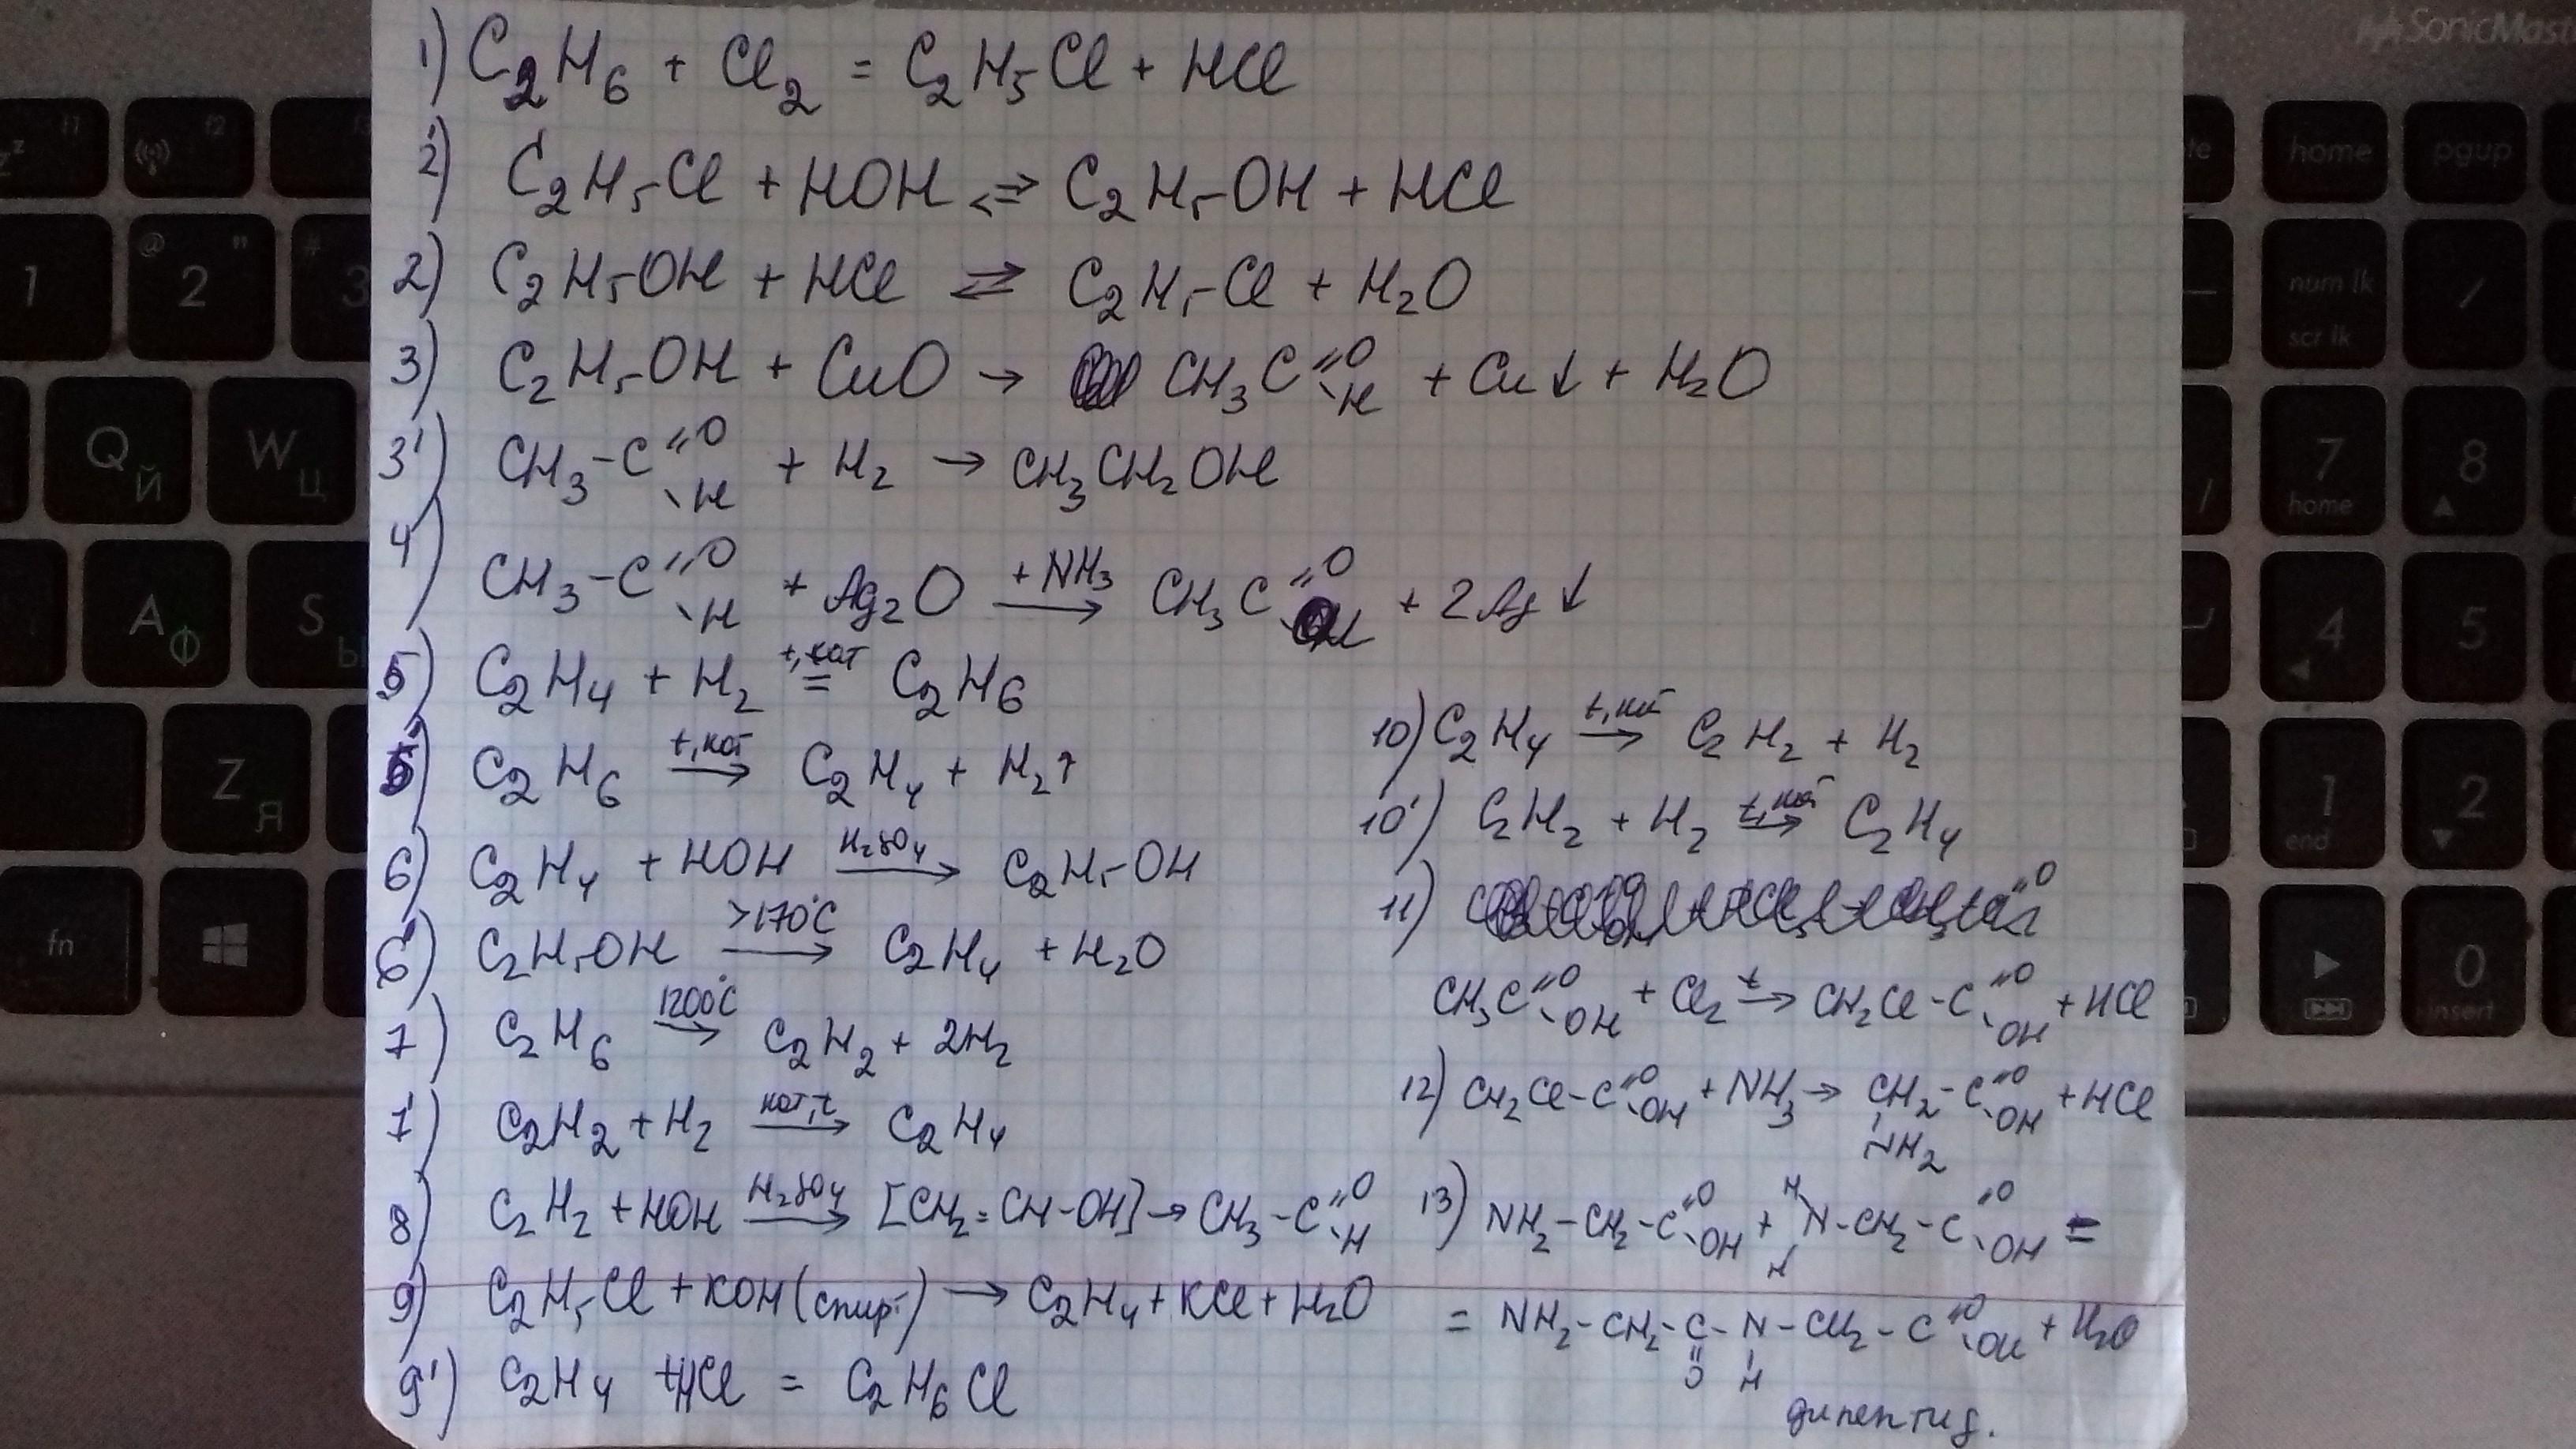 1) C₂H₆ + Cl₂ = C₂H₅Cl + HCl
2') C₂H₅Cl + HOH ⇌ C₂H₅OH + HCl
2) C₂H₅OH + HCl ⇌ C₂H₅Cl + H₂O
3) C₂H₅OH + CuO → CH₃C=O -H + Cu↓ + H₂O
3') CH₃-C=O -H + H₂ → CH₃CH₂OH
4) CH₃-C=O -H + Ag₂O →(+NH₃) CH₃C=O -OH + 2Ag↓
5) C₂H₄ + H₂ =(t, кат) C₂H₆
5') C₂H₆ →(t, кат) C₂H₄ + H₂↑
6) C₂H₄ + HOH →(H₂SO₄) C₂H₅OH
6') C₂H₅OH →(>170°C) C₂H₄ + H₂O
7) C₂H₆ →(1200°C) C₂H₂ + 2H₂
7') C₂H₂ + H₂ →(кат, t) C₂H₄
8) C₂H₂ + HOH →(H₂SO₄) [CH₂=CH-OH] → CH₃-C=O -H
9) C₂H₅Cl + KOH (спирт.) → C₂H₄ + KCl + H₂O
9') C₂H₄ + HCl = C₂H₆Cl
10) C₂H₄ →(t, кат) C₂H₂ + H₂
10') C₂H₂ + H₂ →(t, кат) C₂H₄
11)
CH₃C=O -OH + Cl₂ →(t) CH₂Cl-C=O -OH + HCl
12) CH₂Cl-C=O -OH + NH₃ → CH₂-C=O -OH + HCl
NH₂
13) NH₂-CH₂-C=O -OH + H H N-CH₂-C=O -OH =
= NH₂-CH₂-C-N-CH₂-C=O -OH + H₂O
O H
дипептид.
fn
Q Й
W Ц
A Ф
S Ы
Z Я
1
@ 2 "
# 3
f1
f2
SonicMast
home
pgup
num lk
scr lk
/
7
home
8
4
5
1
end
2
0
insert